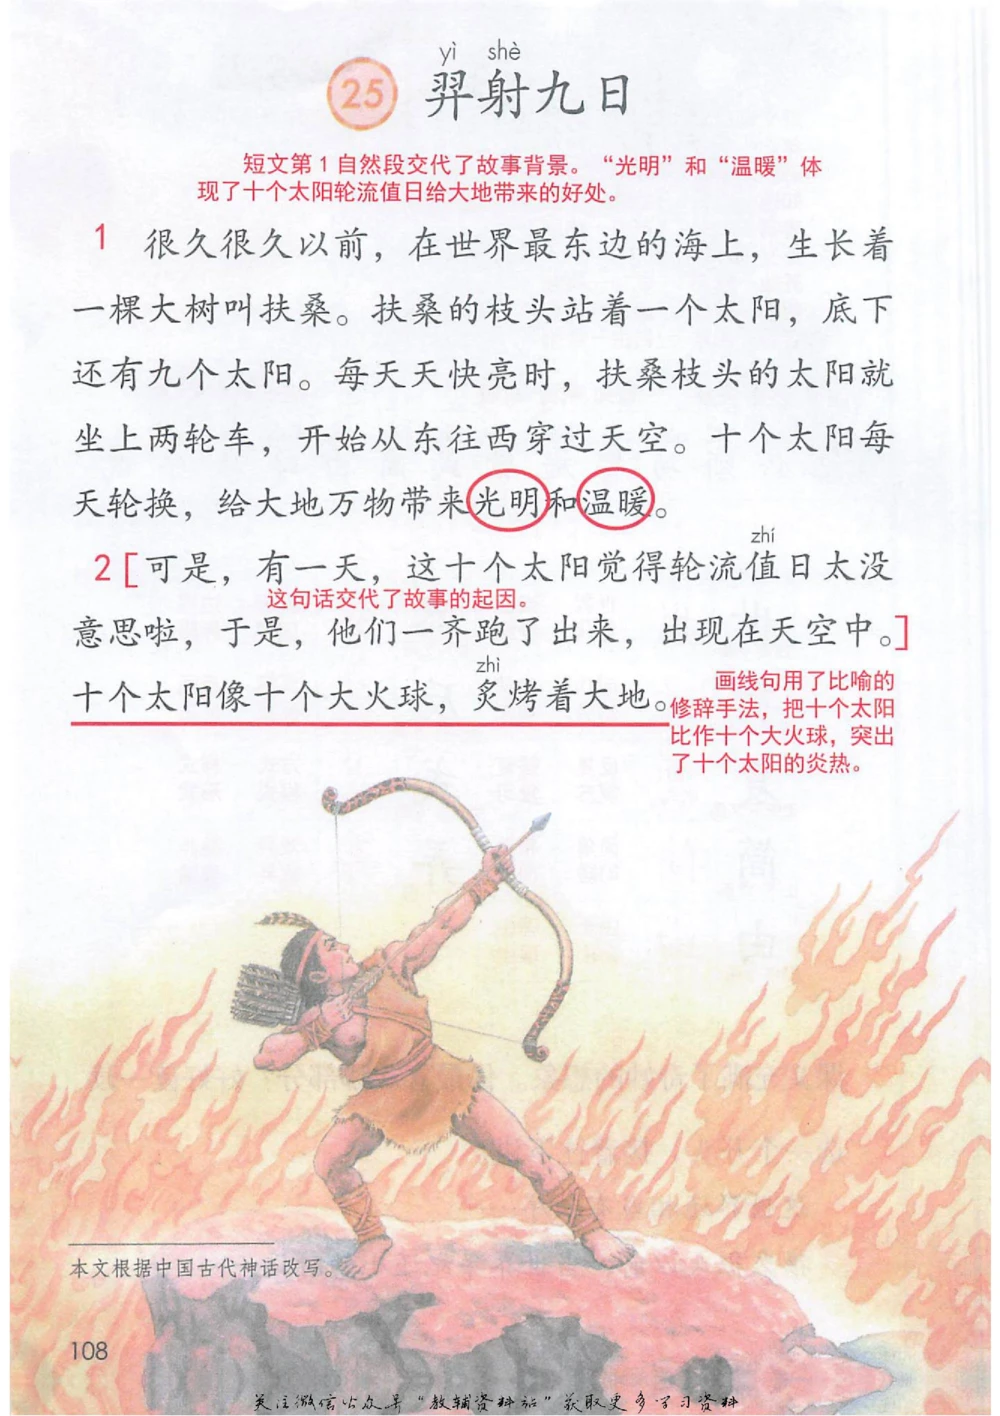 yì shè
25 羿射九日
短文第1自然段交代了故事背景。“光明”和“温暖”体
现了十个太阳轮流值日给大地带来的好处。
1 很久很久以前，在世界最东边的海上，生长着
一棵大树叫扶桑。扶桑的枝头站着一个太阳，底下
还有九个太阳。每天天快亮时，扶桑枝头的太阳就
坐上两轮车，开始从东往西穿过天空。十个太阳每
天轮换，给大地万物带来光明和温暖。
zhí
2[可是，有一天，这十个太阳觉得轮流值日太没
这句话交代了故事的起因。
意思啦，于是，他们一齐跑了出来，出现在天空中。]
zhì
十个太阳像十个大火球，炙烤着大地。
画线句用了比喻的
修辞手法，把十个太阳
比作十个大火球，突出
了十个太阳的炎热。
本文根据中国古代神话改写。
108
关注微信公众号“教辅资料站”获取更多学习资料